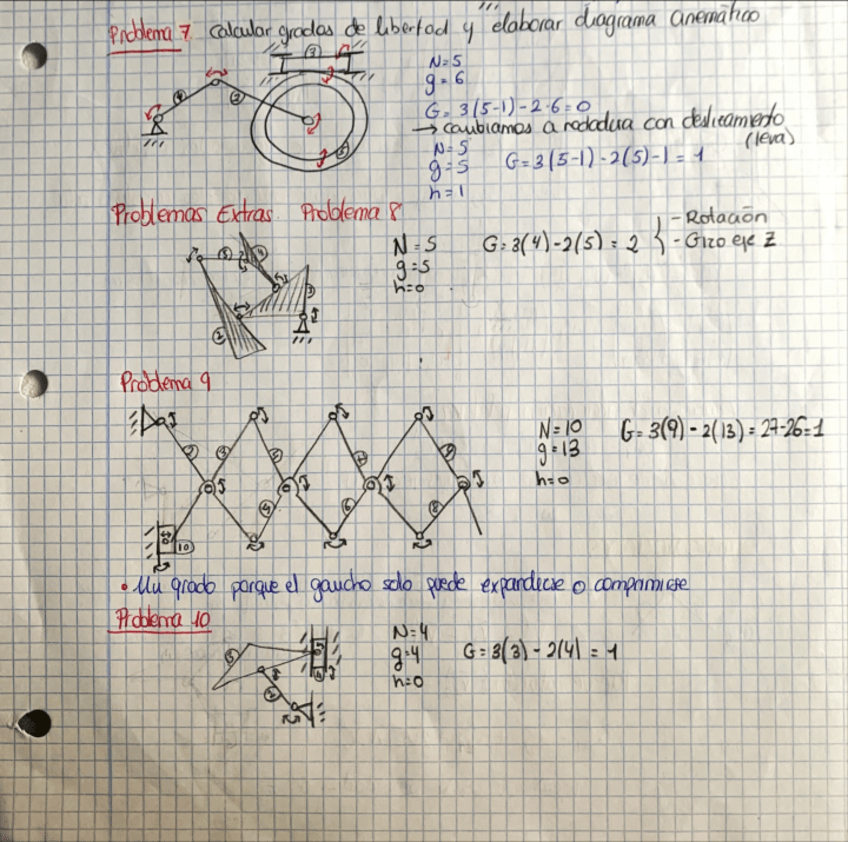 Problema 7 Calcular grados de libertad y elaborar diagrama cinemático
N=5
g=6
G=3(5-1)-2·6=0
→ cambiamos a rodadura con deslizamiento
(leva)
N=5
g=5
h=1
G=3(5-1)-2(5)-1=1
④ ② ③ ⑤
Problemas Extras. Problema 8
N=5
g=5
h=0
G=3(4)-2(5)=2 { -Rotación
-Giro eje Z
⑤ ④ ③ ②
Problema 9
② ③ ④ ⑤ ⑥ ⑦ ⑧ ⑨ 10
N=10
g=13
h=0
G=3(9)-2(13)=27-26=1
• Un grado porque el gaucho solo puede expandirse o comprimirse
Problema 10
③ ② ④
N=4
g=4
h=0
G=3(3)-2(4)=1